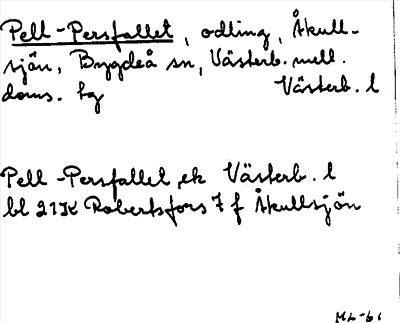 Pell-Persfallet, odling, Åkull-
sjön, Bygdeå sn, Västerb. mell.
doms. hg Västerb. l
Pell-Persfallet, ek Västerb. l
bl 21K Robertsfors 7 f Åkullsjön